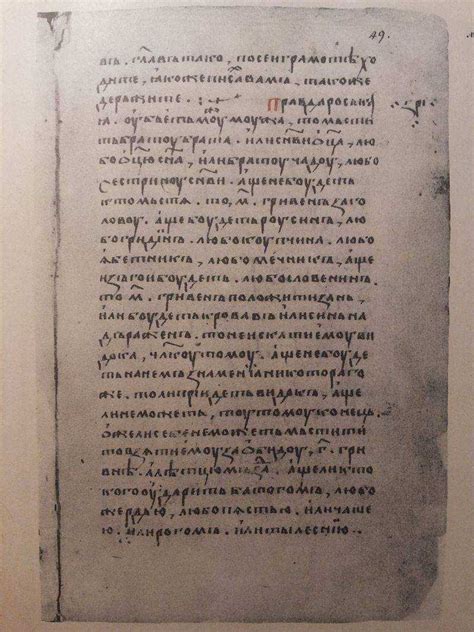 49.
въ, глаⷡ҇ъ тако, по сеи грамотѣ хо
дите, ꙗкоже писа вамъ, такоже
держите. Правда роськаꙗ
ꙗ. оубьеть моужь моужа, то мьсти
ть братоу брата, или сн҃ви ѡц҃а, лю
бо ѡц҃ю сн҃а, или братоучадоу, любо
сестриноу сн҃ви. аще не боудеть
кто мьстꙗ. то, м҃. гривенъ за го
ловоу. аще боудеть роусинъ, лю
бо гридинъ. любо коупчина. любо
ꙗбетникъ, любо мечникъ, аще
изъгои боудеть. любо словенинъ.
то м҃. гривенъ положити за нь,
или боудеть кровавъ или синь на
дъраженъ. то не искати емоу ви
дока, чл҃коу томоу. аще не боуде
ть на немъ знамениꙗ никотораго
же. то ли прідеть видокъ, аще
ли не можеть, тоу томоу конець.
ѡже ли себе не можеть мьстити
то взѧти емоу за ѡбидоу, г҃. грив
нѣ. а лѣтцю мъзда. аще ли кто
кого оударить батогомъ, любо
жердью, любо пѧстью. или чаше
ю. или рогомъ. или тылеснию.